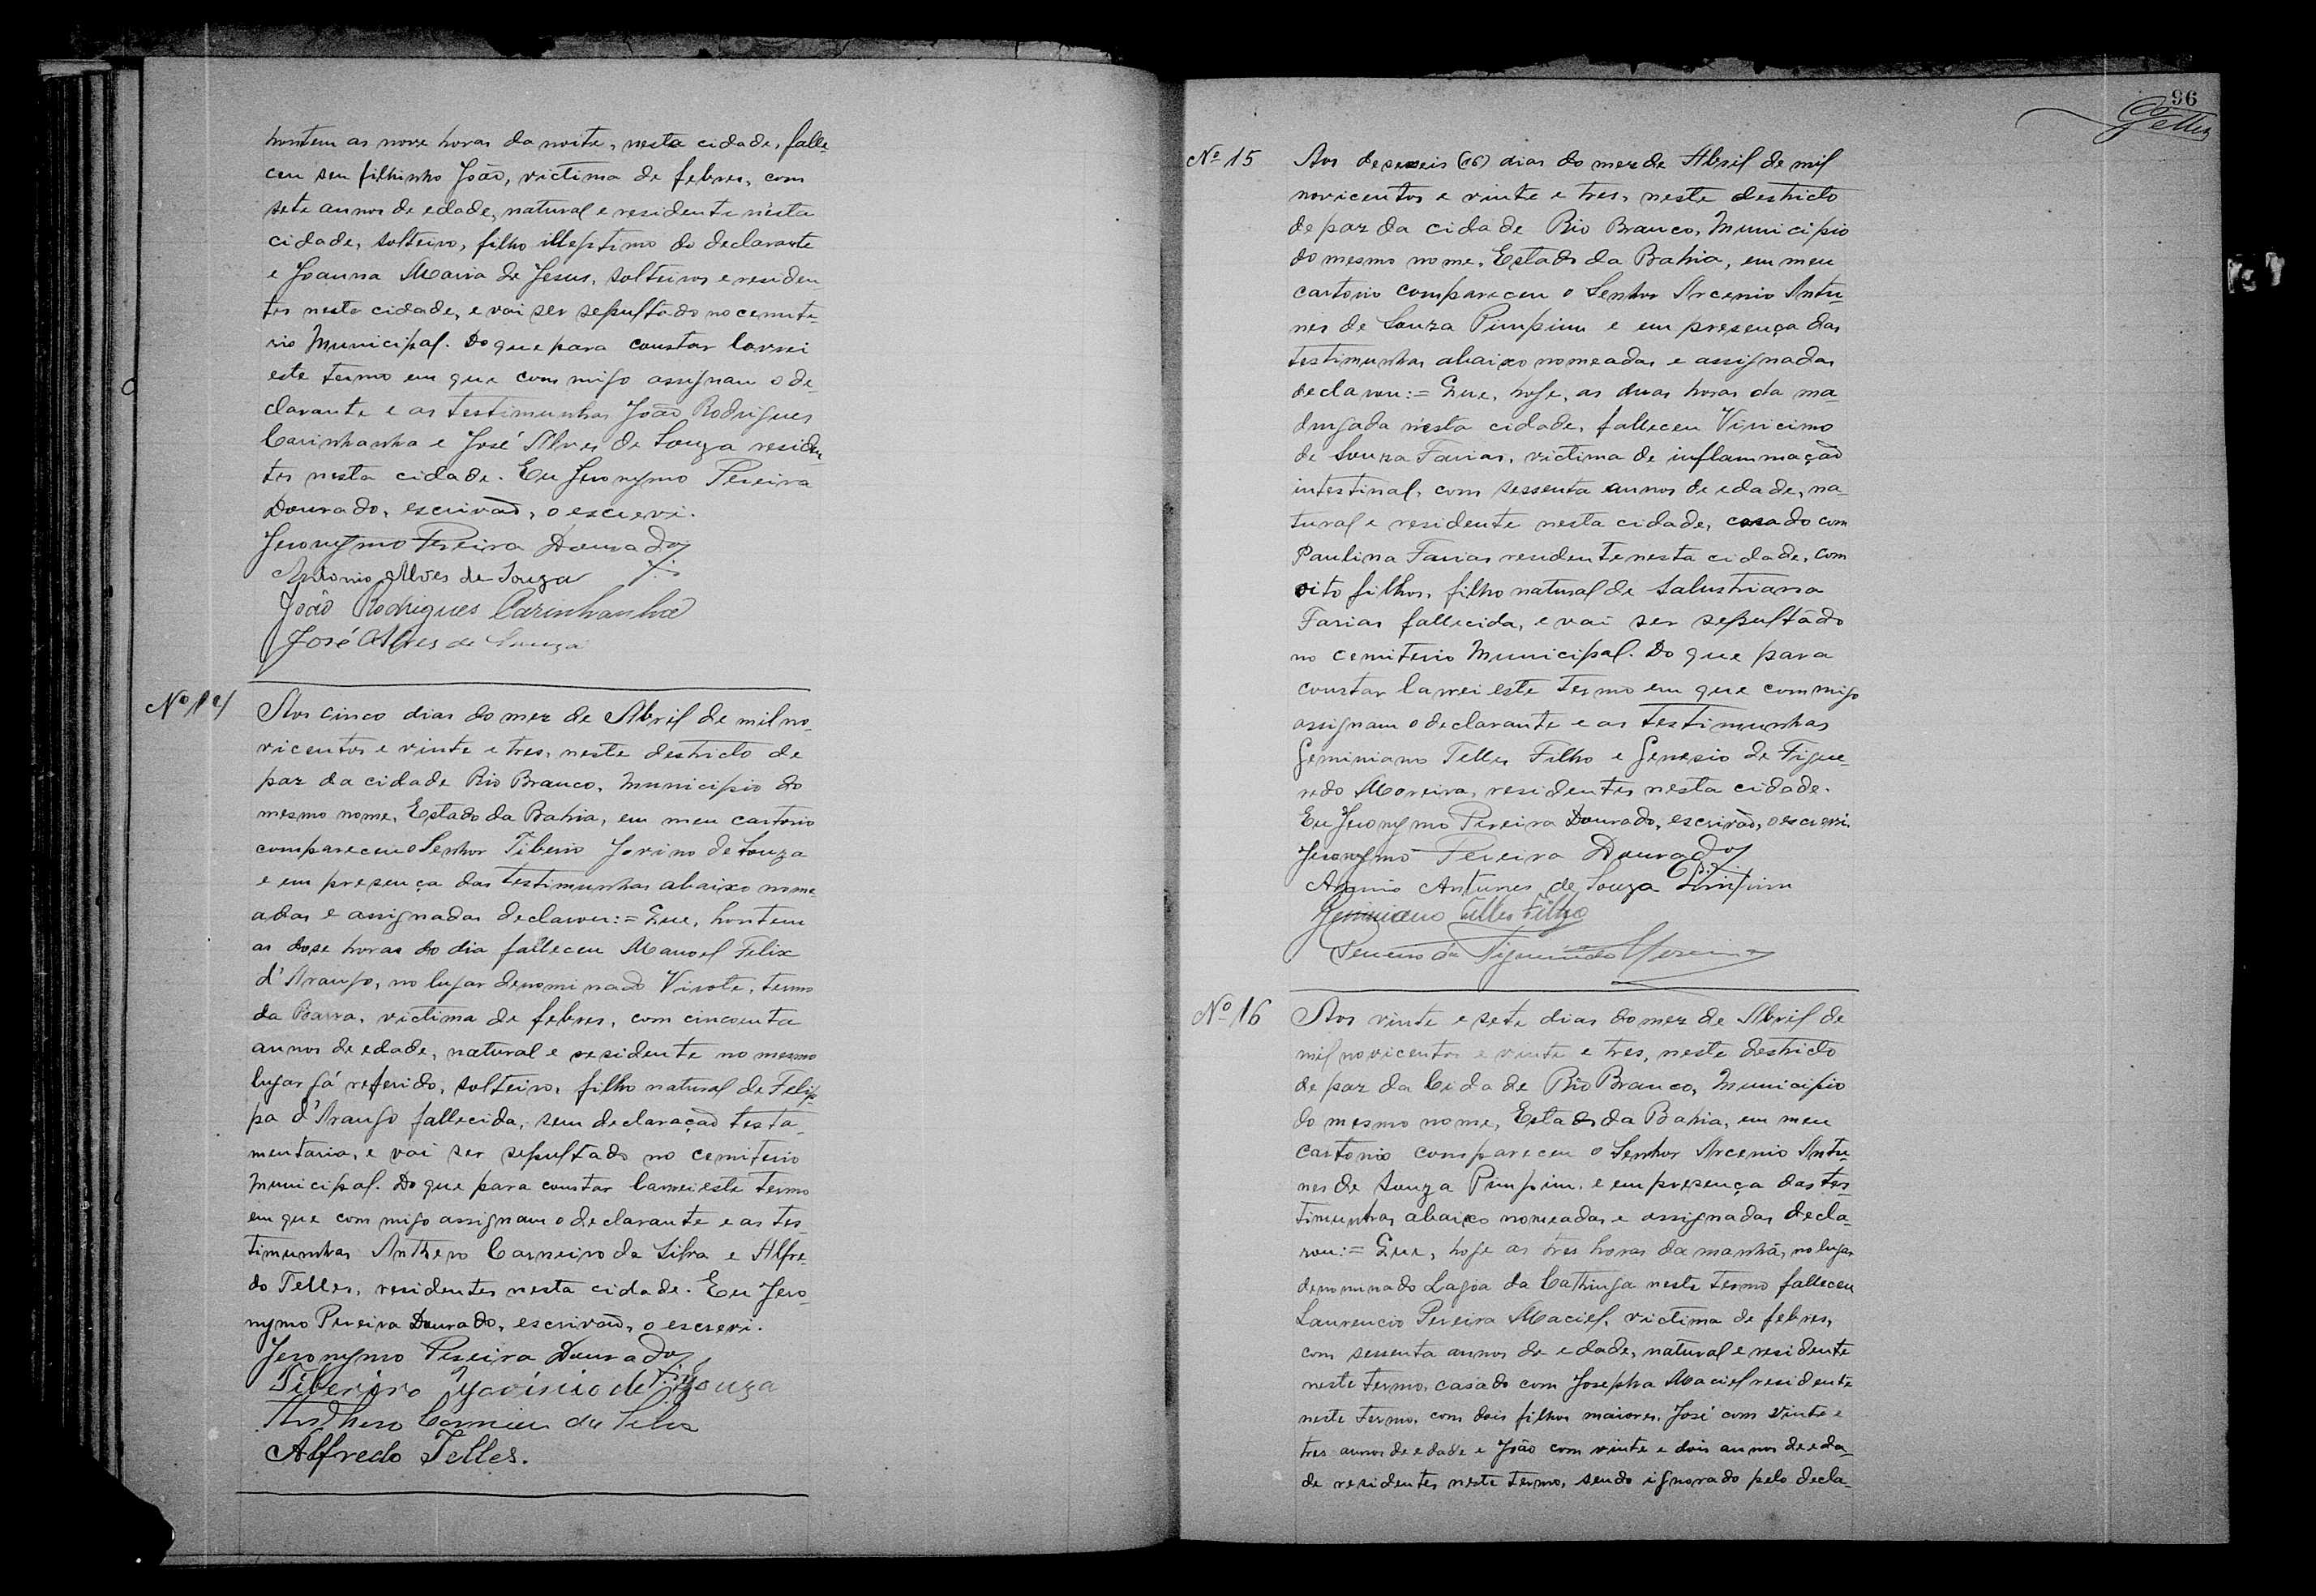 hontem as nove horas da noite, nesta cidade, falle-
ceu seu filhinho João, victima de febres, com
sete annos de edade, natural e residente nésta
cidade, solteiro, filho illegitimo do declarante
e Joanna Maria de Jesus, solteiros e residen-
tes nesta cidade, e vai ser sepultado no cemite-
rio Municipal. Do que para constar lavrei
este termo em que commigo assignam o de-
clarante e as testimunhas João Rodrigues
Carinhanha e José Alves de Souza residen-
tes nesta cidade. Eu Jeronymo Pereira
Dourado, escrivão, o escrevi.
Jeronymo Pereira Dourado
Antonio Alves de Souza
João Rodrigues Carinhanha
José Alves de Souza
Nº 14
Aos cinco dias do mez de Abril de mil no-
vicentos e vinte e tres, neste destricto de
paz da cidade Rio Branco, Municipio do
mesmo nome, Estado da Bahia, em meu cartorio
compareceu o Senhor Tiberio Jovino de Souza
e em presença das testimunhas abaixo nome-
adas e assignadas declarou:= Que, hontem
as dose horas do dia falleceu Manoel Felix
d'Araujo, no lugar denominado Virote, termo
da Barra, victima de febres, com cincoenta
annos de edade, natural e residente no mesmo
lugar já referido, solteiro, filho natural de Felip-
pa d'Araujo fallecida, sem declaração testa-
mentaria, e vai ser sepultado no cemiterio
Municipal. Do que para constar lavrei este termo
em que commigo assignam o declarante e as tes-
timunhas Anthero Carneiro da Silva e Alfre-
do Telles, residentes nesta cidade. Eu Jero-
nymo Pereira Dourado, escrivão, o escrevi.
Jeronymo Pereira Dourado
Tiberio Jovinio de Souza
Anthero Carneiro da Silva
Alfredo Telles.
96
Telles
Nº 15
Aos deseseis (16) dias do mez de Abril de mil
novicentos e vinte e tres, neste destricto
de paz da cidade Rio Branco, Municipio
do mesmo nome, Estado da Bahia, em meu
cartorio compareceu o Senhor Arcenio Antu-
nes de Souza Pimpim e em presença das
testimunhas abaixo nomeadas e assignadas
declarou:= Que, hoje, as duas horas da ma-
drugada nésta cidade, falleceu Viricimo
de Souza Farias, victima de inflammação
intestinal, com sessenta annos de edade, na-
tural e residente nesta cidade, casado com
Paulina Farias residente nesta cidade, com
oito filhos, filho natural de Salustriana
Farias fallecida, e vai ser sepultado
no cemiterio Municipal. Do que para
constar lavrei este termo em que commigo
assignam o declarante e as testimunhas
Geminiano Telles Filho e Genesio de Figue-
redo Moreira, residentes nesta cidade.
Eu Jeronymo Pereira Dourado, escrivão, o escrevi.
Jeronymo Pereira Dourado
Arcenio Antunes de Souza Pimpim
Geminiano Telles Filho
Genesio de Figueiredo Moreira
Nº 16
Aos vinte e sete dias do mez de Abril de
mil novicentos e vinte e tres, neste destricto
de paz da Cidade Rio Branco, Municipio
do mesmo nome, Estado da Bahia, em meu
cartorio compareceu o Senhor Arcenio Antu-
nes de Souza Pimpim, e em presença das tes-
timunhas abaixo nomeadas e assignadas decla-
rou:= Que, hoje as tres horas da manhã, no lugar
denominado Lagoa da Cathinga neste termo falleceu
Laurencio Pereira Maciel, victima de febres,
com sessenta annos de edade, natural e residente
neste termo, casado com Josepha Maciel residente
neste termo, com dois filhos maiores, José com vinte e
tres annos de edade e João com vinte e dois annos de eda-
de residentes neste termo, sendo ignorado pelo decla-